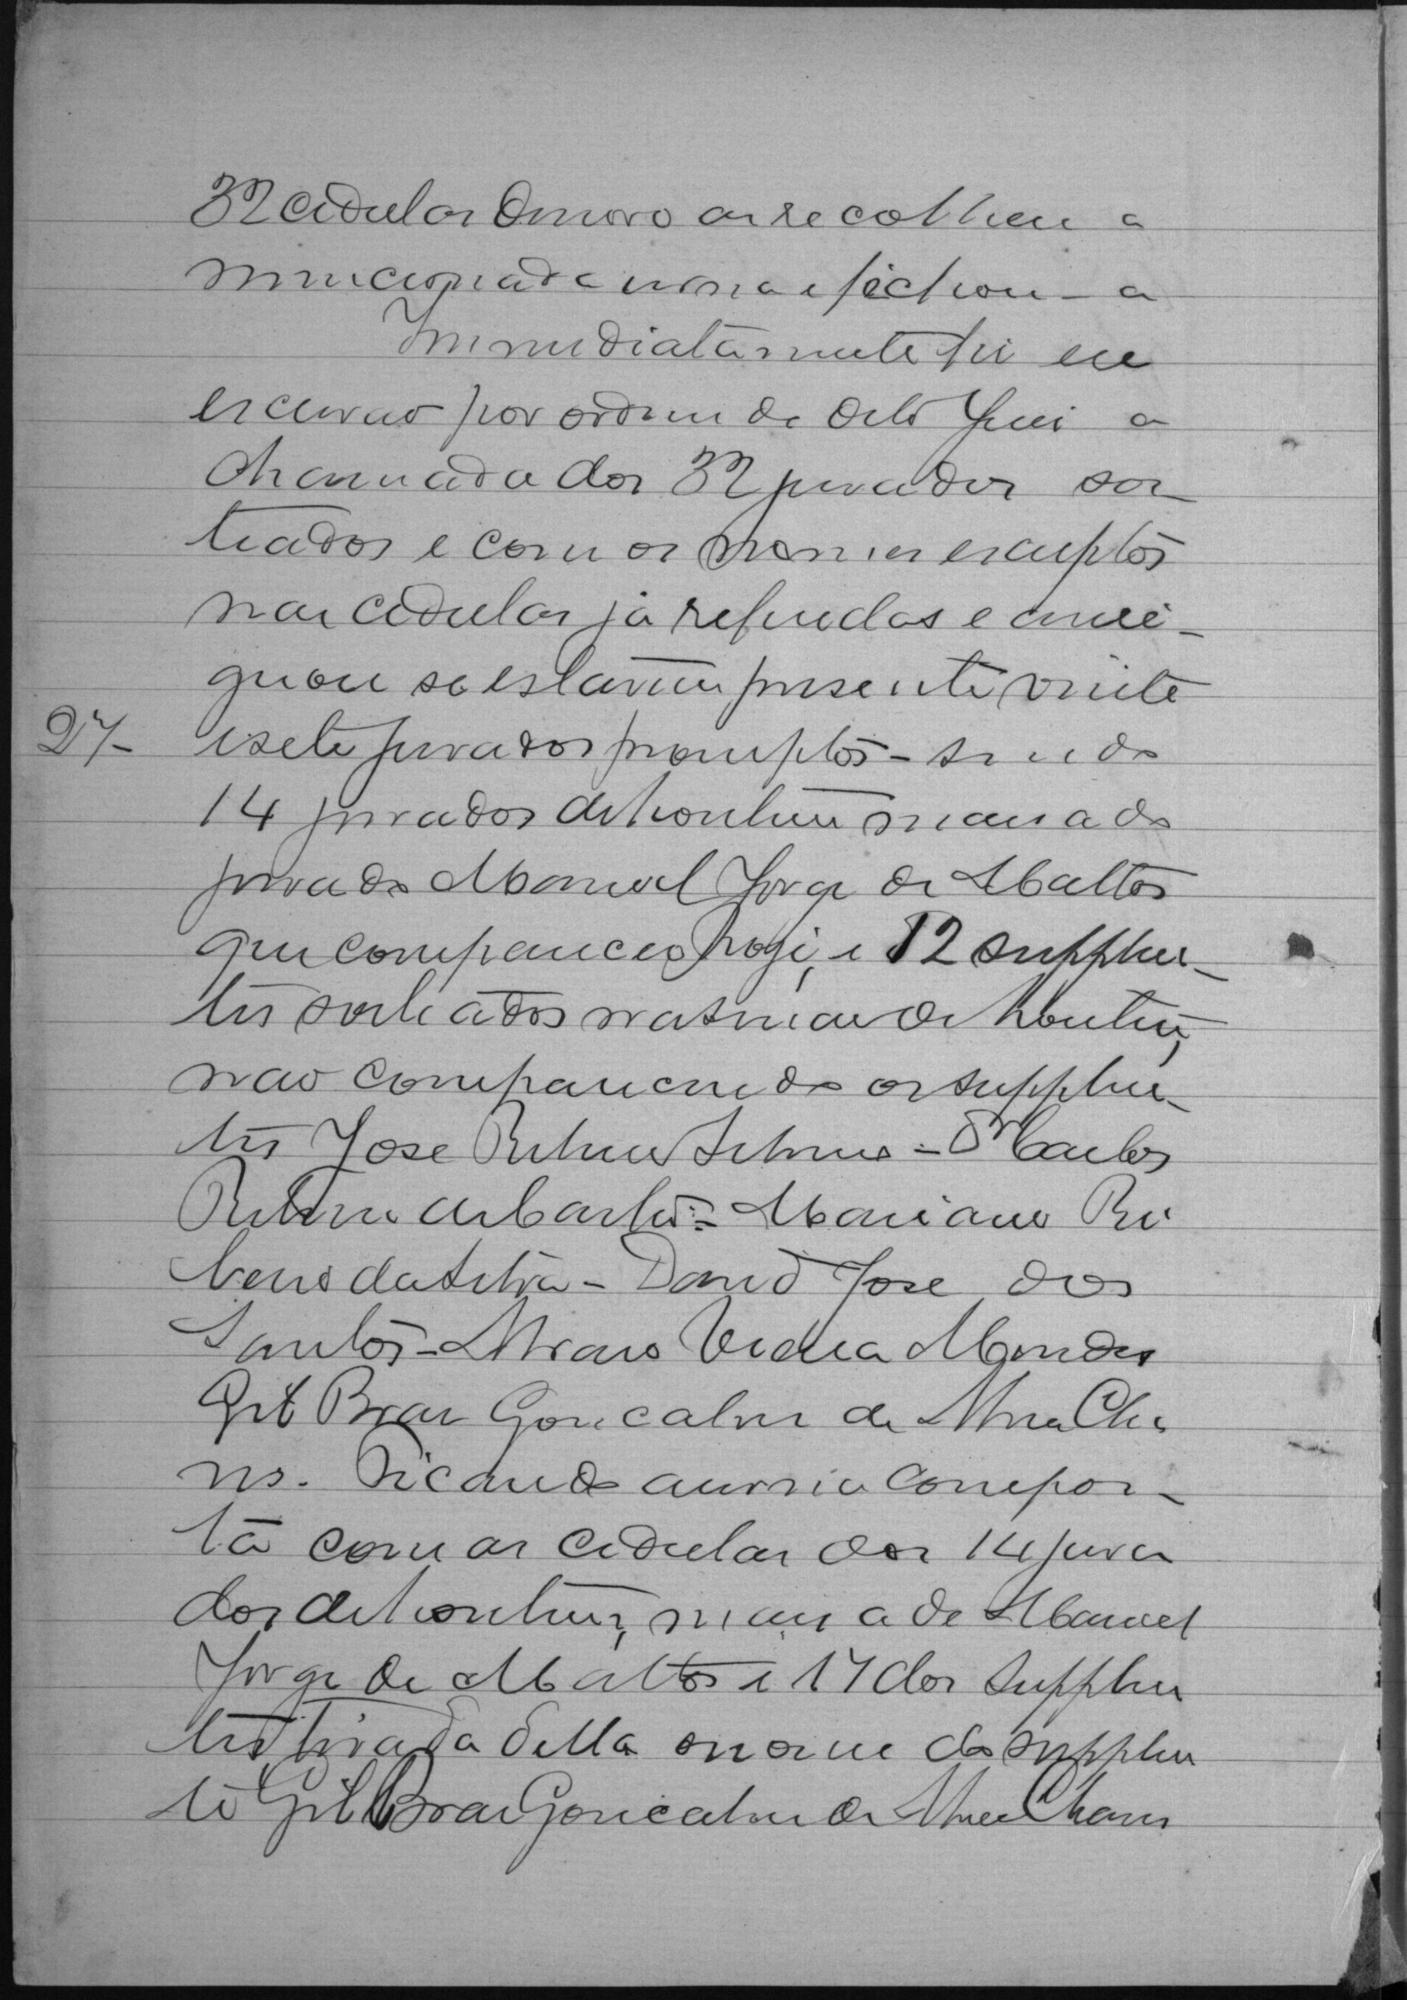 32 cedulas de novo as recolheu a
mencionada urna e fechou-a
Immediatamente fiz eu
escrivão por ordem de dito Juiz a
chamada dos 32 jurados sor-
teados e com os nomes escriptos
nas cedulas já referidas e averi-
guou se estarem presente vinte
27- e sete jurados promptos - sendo
14 jurados de hontem mais a do
jurado Manoel Jorge de Mattos
que compareceo hoje, e 12 supplen-
tes sorteados na sessão de hontem,
não comparecendo os supplen-
tes Jose Ribeiro Silva - Dr Carlos
Ribeiro de Castro - Mariano Ri
beiro da Silva - David Jose dos
Santos - Alvaro Vieira Mendes
Gil Braz Goncalves da Silva Cha
ves. Ficando a urna compos-
ta com as cedulas dos 14 jura
dos de hontem, mais a de Manoel
Jorge de Mattos e 17 dos supplen
tes tirada della o nome do supplen
te Gil Braz Goncalves da Silva Chaves